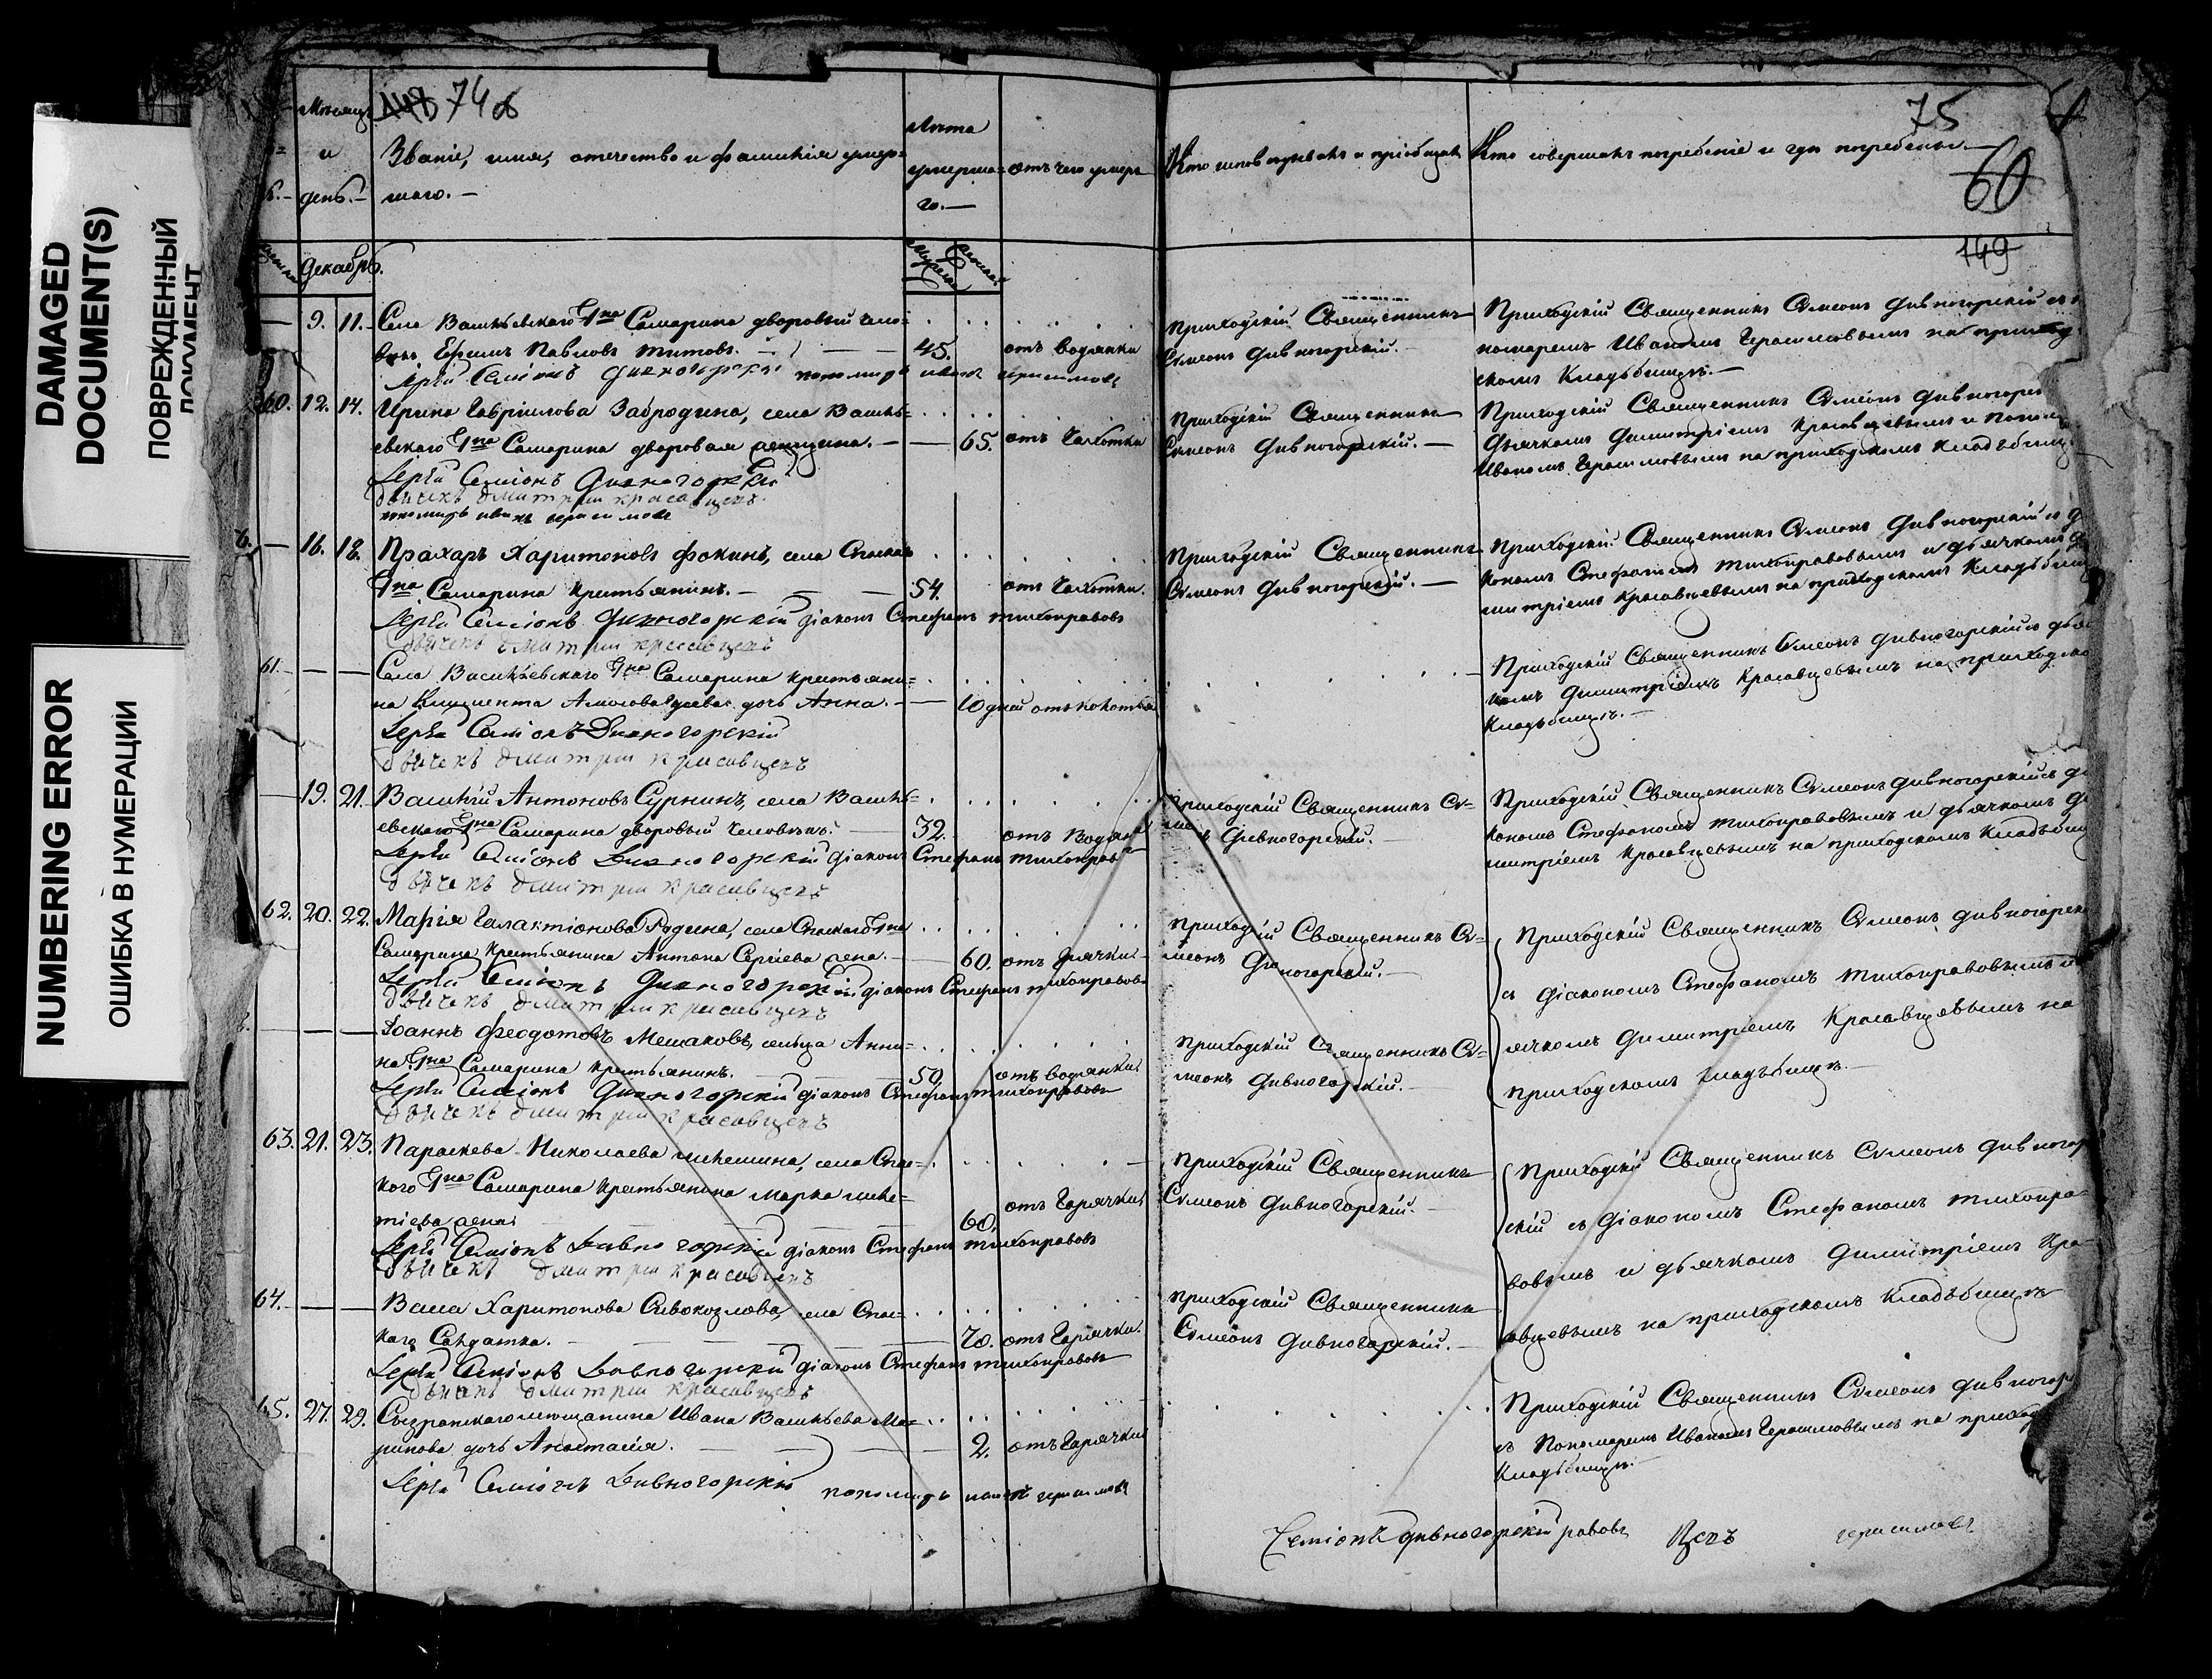 DAMAGED
DOCUMENT(S)
ПОВРЕЖДЕННЫЙ
ДОКУМЕНТ
NUMBERING ERROR
ОШИБКА В НУМЕРАЦИИ
148 74 об
Мѣсяцъ
и
день.
Званіе, имя, отечество и фамилія умер=
шаго.
Лѣта
умерша=
го.
отъ чего умеръ
Кто исповѣдывалъ и пріобщалъ
Кто совершалъ погребеніе и гдѣ погребены.
75
60
149
Декабрь.
Мужеска
Женска
9. 11. Села Васильевскаго Гна Самарина дворовый чело=
вѣкъ Ефимъ Павловъ Титовъ. 45. отъ водянки
Іерей Симіонъ Дивногорскій пономарь иванъ герасимовъ
Приходскій Священникъ
Сѵмеонъ Дивногорскій.
Приходскій Священникъ Сѵмеонъ Дивногорскій съ
пономаремъ Иваномъ Герасимовымъ на приход
скомъ Кладьбищѣ.
60. 12. 14. Ирина Гавріилова Забродина, села Василь=
евскаго Гна Самарина дворовая женщина. 65. отъ Чахотки
Іерей Симіонъ Дивногорскій
дьячекъ дмитрии красавцевъ
пономарь иванъ герасимовъ
Приходскій Священникъ
Сѵмеонъ Дивногорскій.
Приходскій Священникъ Сѵмеонъ Дивногорс
Дьячкомъ Димитріемъ Красавцевымъ и Поном
Иваномъ Герасимовымъ на приходскомъ Кладьбищ
16. 18. Прахаръ Харитоновъ Фокинъ, села Спаскаго
Гна Самарина Крестьянинъ. 54. отъ Чахотки.
Іерей Симіонъ Дивногорскій діаконъ Стефанъ Тихонравовъ
дьячекъ дмитрии красавцевъ
Приходскій Священникъ
Сѵмеонъ Дивногорскій.
Приходскій Священникъ Сѵмеонъ Дивногорскій съ
кономъ Стефаномъ Тихонравовымъ и дьячкомъ
митріемъ Красавцевымъ на приходскомъ Кладьбищ
61. Села Васильевскаго Гна Самарина крестьяни=
на дочь Анна. 10 дней отъ
Іерей Симіонъ Дивногорскій
дьячекъ дмитрии красавцевъ
Приходскій Священникъ Сѵмеонъ Дивногорскій съ дья
комъ Димитріемъ Красавцевымъ на приходско
Кладьбищѣ.
19. 21. Василій Антоновъ Сурнинъ, села Василь=
евскаго Гна Самарина дворовый человѣкъ. 32. отъ Водянки
Іерей Симіонъ Дивногорскій діаконъ Стефанъ Тихонравовъ
дьячекъ дмитрии красавцевъ
Приходскій Священникъ Сѵ=
меонъ Дивногорскій.
Приходскій Священникъ Сѵмеонъ Дивногорскій съ
кономъ Стефаномъ Тихонравовымъ и дьячкомъ
митріемъ Красавцевымъ на приходскомъ Кладьбищ
62. 20. 22. Марія Галактіонова Родина, села Спаскаго Гна
Самарина Крестьянина Антона Сергіева жена. 60. отъ Горячки
Іерей Симіонъ Дивногорскій діаконъ Стефанъ Тихонравовъ
дьячекъ дмитрии красавцевъ
Приходскій Священникъ Сѵ=
меонъ Дивногорскій.
Приходскій Священникъ Сѵмеонъ Дивногорск
съ Діакономъ Стефаномъ Тихонравовымъ и
ячкомъ Димитріемъ Красавцевымъ на
приходскомъ Кладьбищѣ.
Іоаннъ Феодотовъ Мешаковъ, сельца Анни=
на Гна Самарина Крестьянинъ. 50. отъ водянки
Іерей Симіонъ Дивногорскій діаконъ Стефанъ Тихонравовъ
дьячекъ дмитрии красавцевъ
Приходскій Священникъ Сѵ=
меонъ Дивногорскій.
63. 21. 23. Параскева Николаева села Спас=
кого Гна Самарина Крестьянина Марка
жена. 60. отъ Горячки
Іерей Симіонъ Дивногорскій діаконъ Стефанъ Тихонравовъ
дьячекъ дмитрии красавцевъ
Приходскій Священникъ
Сѵмеонъ Дивногорскій.
Приходскій Священникъ Сѵмеонъ Дивногор
скій съ Діакономъ Стефаномъ Тихонра=
вовымъ и дьячкомъ Димитріемъ Кра=
савцевымъ на приходскомъ Кладьбищѣ
64. Васса Харитонова Сивокозлова, села Спас=
каго Салдатка. 70. отъ Горячки.
Іерей Симіонъ Дивногорскій діаконъ Стефанъ Тихонравовъ
дьячекъ дмитрии красавцевъ
Приходскій Священникъ
Сѵмеонъ Дивногорскій.
65. 27. 29. Сызранскаго мещанина Ивана Васильева Ма=
ринова дочь Анастасія. 2. отъ Горячки
Іерей Симіонъ Дивногорскій пономарь иванъ герасимовъ
Приходскій Священникъ Сѵмеонъ Дивногор
съ Пономаремъ Иваномъ Герасимовымъ на приход
Кладьбищѣ.
Семіонъ Дивногорскій равовъ цевъ герасимовъ